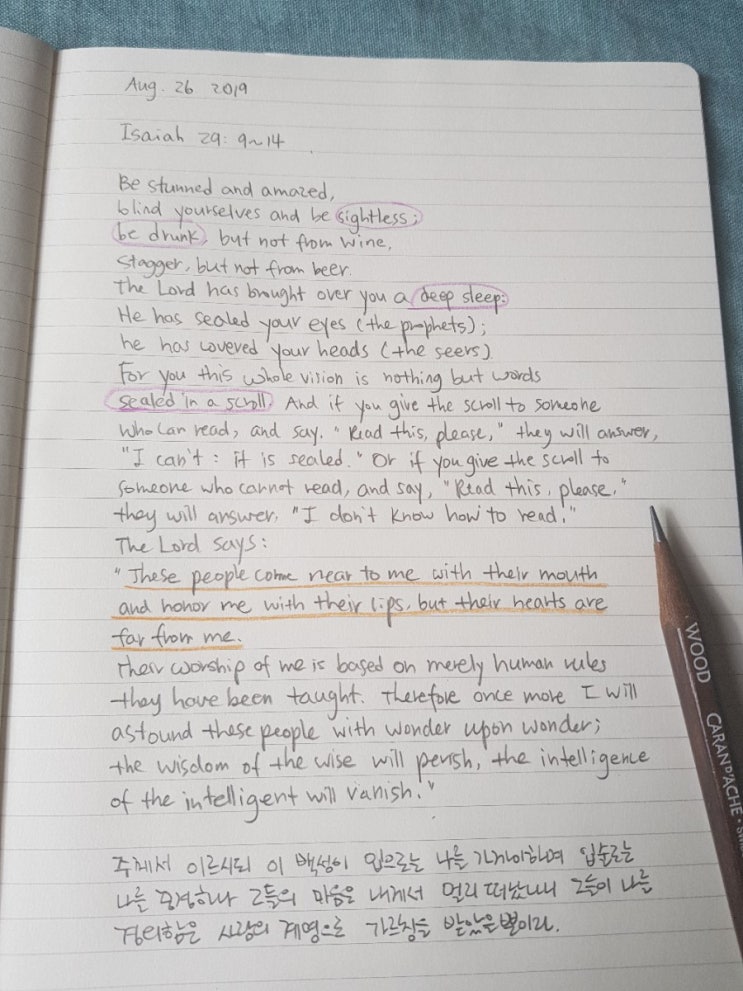 Aug. 26 2019
Isaiah 29: 9~14
Be stunned and amazed,
blind yourselves and be sightless;
be drunk, but not from wine,
stagger, but not from beer.
The Lord has brought over you a deep sleep:
He has sealed your eyes (the prophets);
he has covered your heads (the seers).
For you this whole vision is nothing but words
sealed in a scroll. And if you give the scroll to someone
who can read, and say, "Read this, please," they will answer,
"I can't : it is sealed." Or if you give the scroll to
someone who cannot read, and say, "Read this, please,"
they will answer, "I don't know how to read."
The Lord says:
"These people come near to me with their mouth
and honor me with their lips, but their hearts are
far from me.
Their worship of me is based on merely human rules
they have been taught. Therefore once more I will
astound these people with wonder upon wonder;
the wisdom of the wise will perish, the intelligence
of the intelligent will vanish."
주께서 이르시되 이 백성이 입으로는 나를 가까이하며 입술로는
나를 공경하나 그들의 마음은 내게서 멀리 떠났나니 그들이 나를
경외함은 사람의 계명으로 가르침을 받았을 뿐이라.
WOOD
CARAN D'ACHE